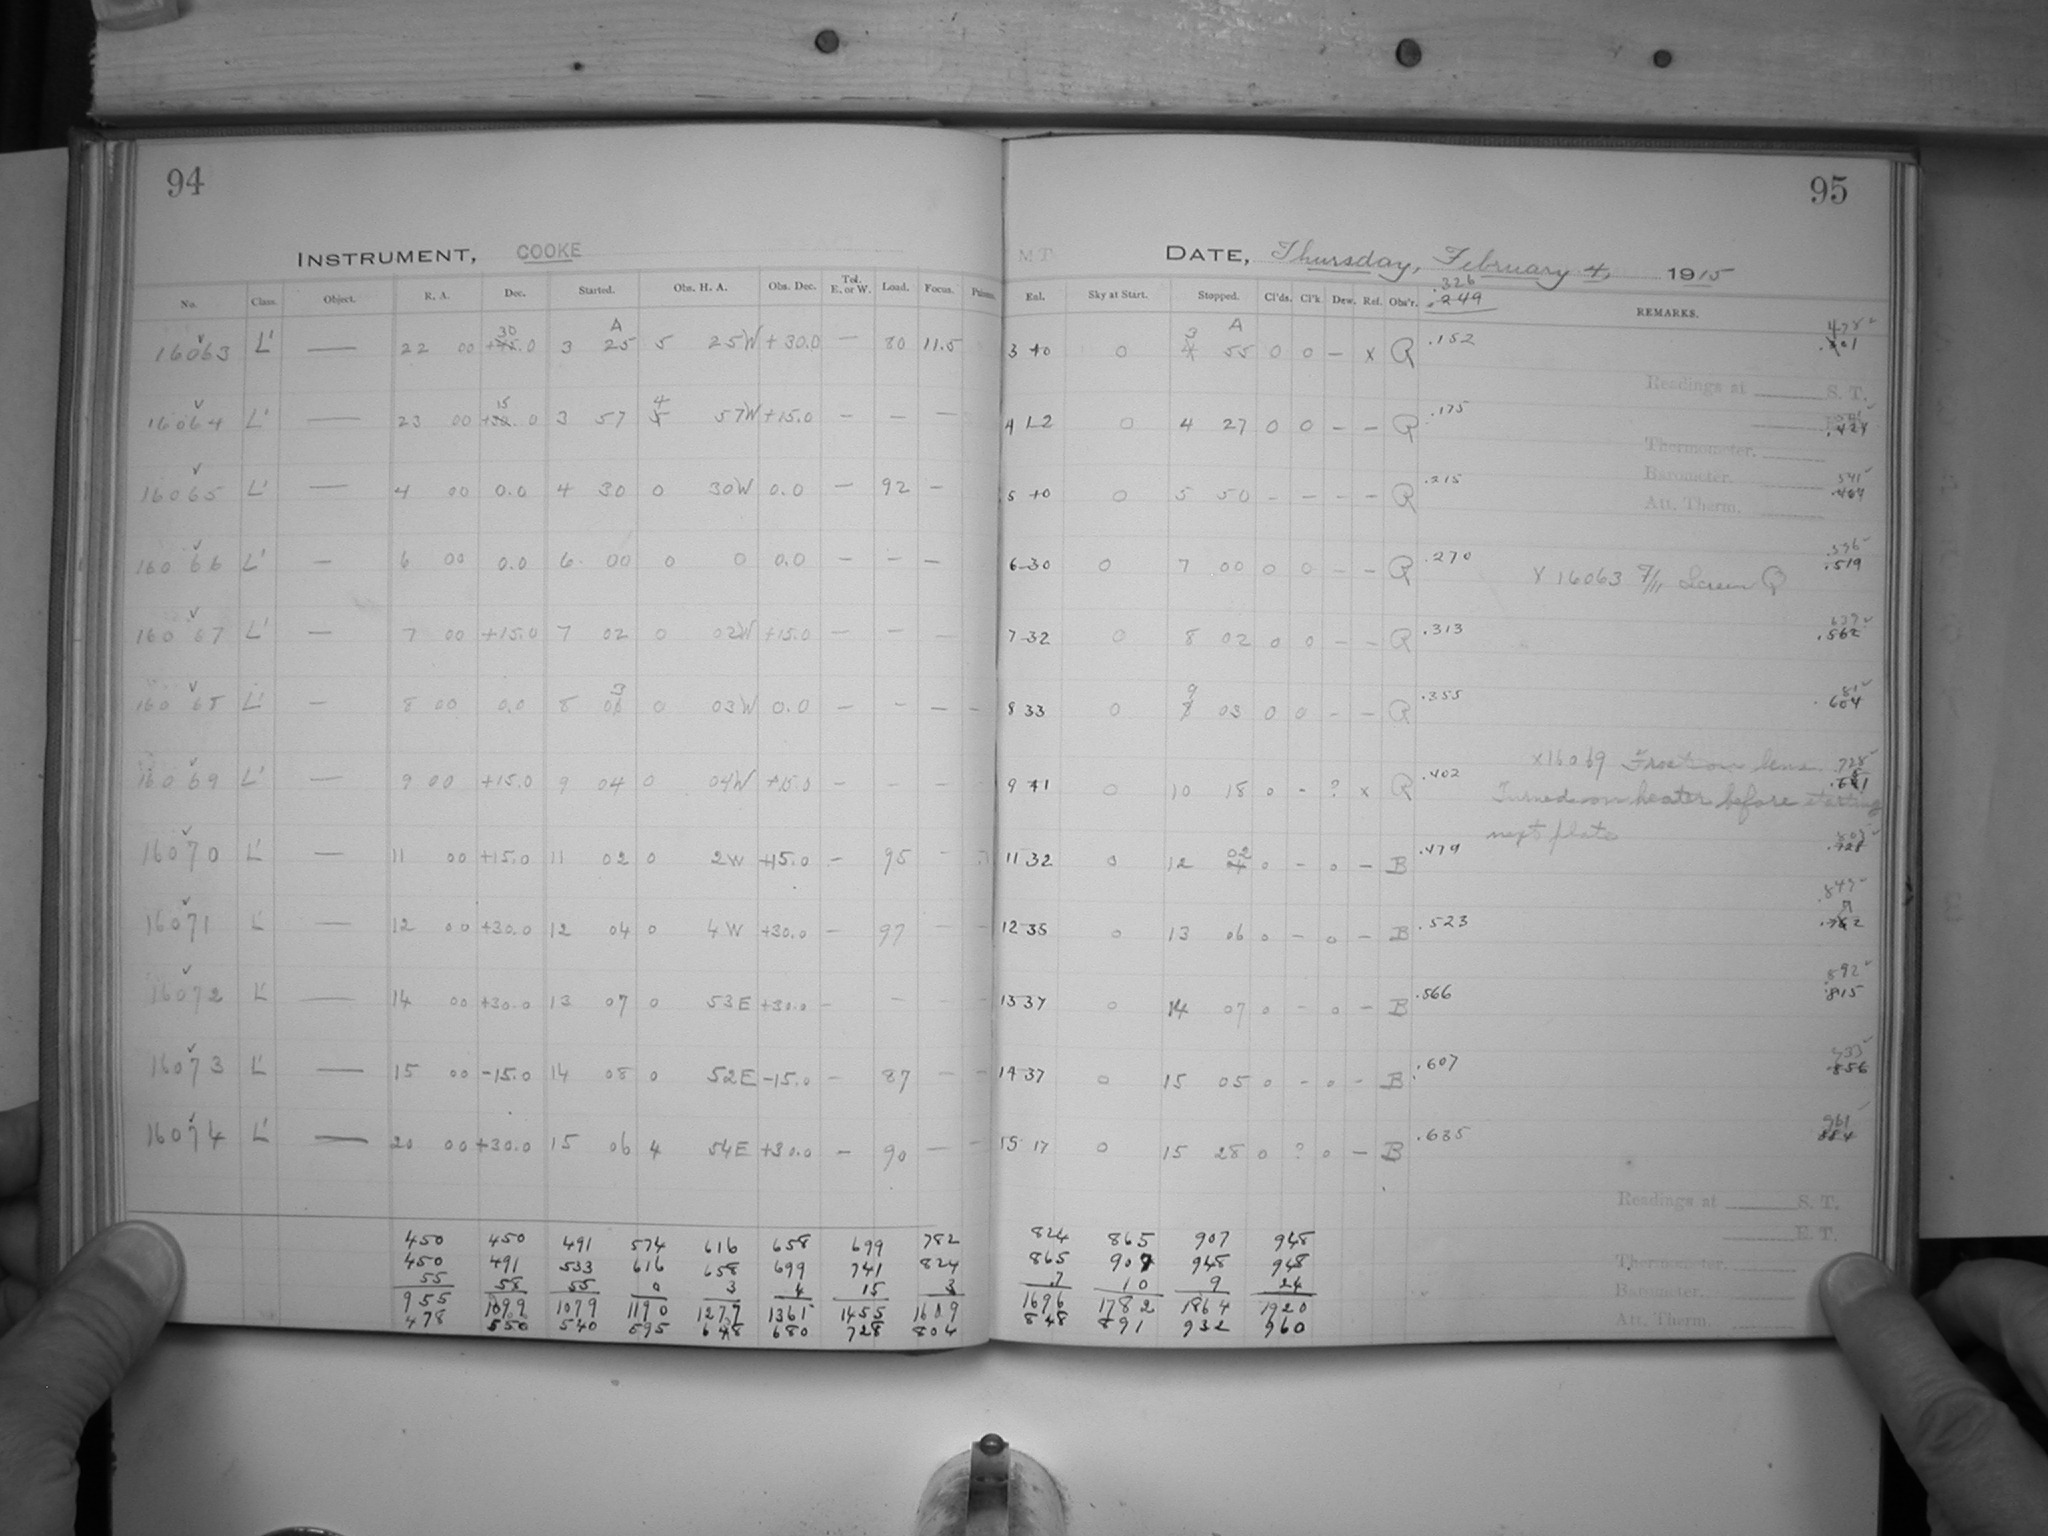 94
95
INSTRUMENT, COOKE
M T
DATE, Thursday, February 4, 1915
.326
.249
No. Class. Object. R. A. Dec. Started. Obs. H. A. Obs. Dec. Tel. E. or W. Load. Focus.
Enl. Sky at Start. Stopped. Cl'ds. Cl'k Dew. Ref. Obs'r. REMARKS.
16063 L' — 22 00 30 .0 3 A 25 5 25W +30.0 — 80 11.5 3 40 0 3 A 55 0 0 — x R .152
Readings at S. T.
16064 L' — 23 00 15 0 3 57 4 57W +15.0 — — — 4 12 0 4 27 0 0 — — R .175
Thermometer.
16065 L' — 4 00 0.0 4 30 0 30W 0.0 — 92 — 5 10 0 5 50 - - - - R .215 541
Barometer.
Att. Therm.
16066 L' — 6 00 0.0 6 00 0 0 0.0 — — — 6 30 0 7 00 0 0 — — R .270 .519
X 16063 7/11 Screen R
16067 L' — 7 00 +15.0 7 02 0 02W +15.0 — — — 7 32 0 8 02 0 0 — — R .313 .562
16068 L' — 8 00 0.0 8 03 0 03W 0.0 — — — 8 33 0 9 03 0 0 — — R .355 604
16069 L' — 9 00 +15.0 9 04 0 04W +15.0 — — — 9 41 0 10 18 0 - ? x R .402 728
x16069 Frost on lens.
Turned on heater before starting
next plate
16070 L' — 11 00 +15.0 11 02 0 2W +15.0 — 95 — 11 32 0 12 02 0 - 0 — B .479 .728
16071 L' — 12 00 +30.0 12 04 0 4W +30.0 — 97 — 12 35 0 13 06 0 - 0 — B .523
16072 L' — 14 00 +30.0 13 07 0 53E +30.0 — — — 13 37 0 14 07 0 - 0 — B .566 892 .815
16073 L' — 15 00 -15.0 14 08 0 52E -15.0 — 87 — 14 37 0 15 05 0 - 0 - B .607 .856
16074 L' — 20 00 +30.0 15 06 4 54E +30.0 — 90 — 15 17 0 15 28 0 ? 0 — B .635 961 884
Readings at S. T.
E. T.
Thermometer.
Barometer.
Att. Therm.
450 450 491 574 616 658 699 782 824 865 907 948
450 491 533 616 658 699 741 824 865 907 948 948
55 58 55 0 3 4 15 3 7 10 9 24
955 1099 1079 1190 1277 1361 1455 1609 1696 1782 1864 1920
478 550 540 595 638 680 728 804 848 891 932 960